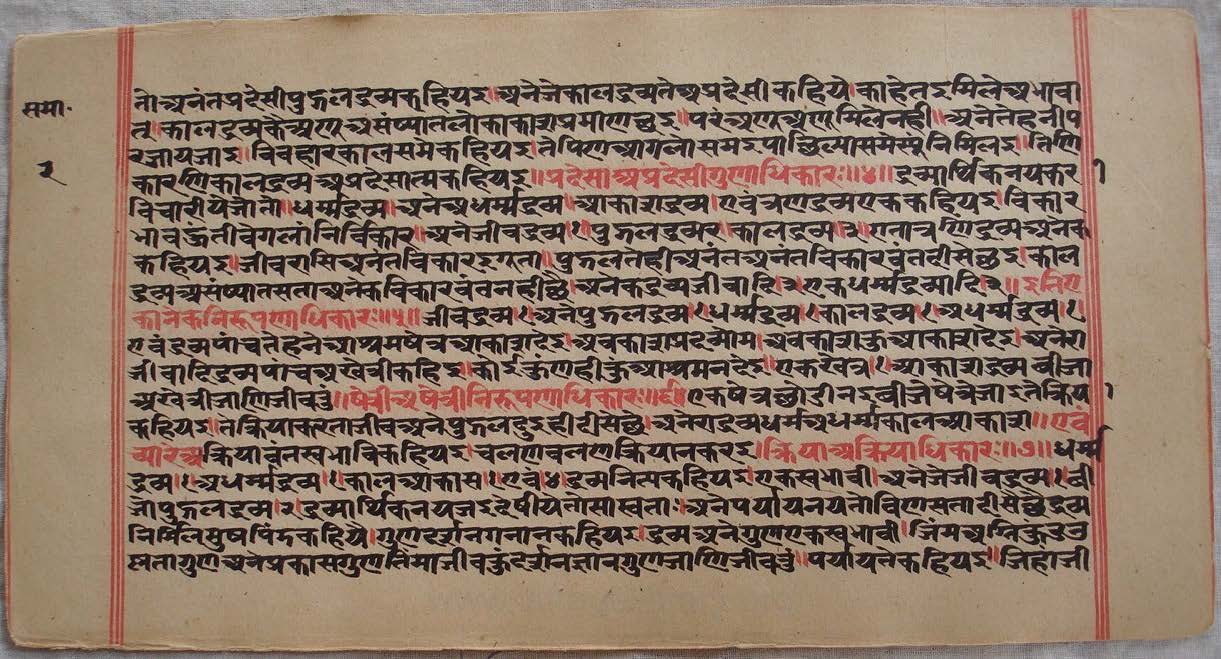 समा॰
२
तो अनंतप्रदेसी पुद्गलद्रव्य कहियइ। अनें जे कालद्रव्य ते अप्रदेसी कहियें। का हेतइ मिलें अभावा
त्। कालद्रव्य कें अणू असंष्यात लोकाकाशप्रमाण छइ॥ परं अणू अणू मिलें नही॥ अनें तेहनी प
रजाय जाइ॥ विवहारकाल समें कहियइ। ते पिण आगला समइ पाछिल्या समें स्यु नि मिलइ॥ तिणि
कारणि कालद्रव्य अप्रदेसात्म कहियइ॥ प्रदेसी अप्रदेसीगुणाधिकारः॥४॥ द्रव्यार्थिकनय कर
विचारीयें जातो॥ धर्म्मद्रव्य। अनें अधर्म्मद्रव्य। आकाशद्रव्य। एवं त्रण द्रव्य एक कहियइ। विकार
भाव हुंती वेगला निर्विकार॥ अनें जीवद्रव्य।१। पुद्गलद्रव्य२। कालद्रव्य।३। एता त्रणि द्रव्य अनेक
कहियइ। जीवरासि अनंत विकारइ गता॥ पुद्गल तेही अनंत अनंत विकारवंत दीसें छइ। काल
द्रव्य असंष्यात सता अनेक विकारवंत नही छै। अनेक द्रव्य जीवादि।३। एक धर्मद्रव्यादि३॥ इति ए
कानेकनिरूपणाधिकारः॥५॥ जीवद्रव्य।१। अनें पुद्गलद्रव्य।१। धर्म्मद्रव्य।१। कालद्रव्य।१। अधर्म्मद्रव्य।१।
एवं द्रव्य पांच तेहनें आश्रमषेत्र आकाश देइ। अवकाशप्रदे व्योम। अवकाश कुं आकाश देइ। अनेरा
जीवादि द्रव्य पांच अखेत्री कहिइ। कोई कुंण ही कुं आश्रम न देइ। एक खेत्र।१। आकाशद्रव्य बीजा
अखेत्री जाणि जीव तुं॥ षेत्रीअषेत्रीनिरूपणाधिकारः॥६॥ एक षेत्र छोडीनइ बीजे षेत्रें जाइ तें क्रिया
कहियइ। ते क्रिया करता जीव अनें पुद्गल दुइ ही दीसें छे। अनेरा द्रव्य धर्म अधर्म्म काल आकाश॥ एवं
च्यारं अक्रियावंत स्वभावि कहियइ। चलण वलण क्रिया न करइ। क्रियाअक्रियाधिकारः॥७॥ धर्म्म
द्रव्य।१। अधर्म्मद्रव्य।१। काल आकास।१। एवं।४। द्रव्य नित्य कहियइ। एक स्वभावी। अनें जे जीवद्रव्य।१। बी
जो पुद्गलद्रव्य।२। द्रव्यार्थिकनय जइ देषीयें तो सास्वता।१। अनें पर्यायनय तो विणसता दीसें छै द्रव्य
निर्मल सुष पिंड कहियै। गुण दर्शन ग्नान कहियइ। द्रव्य अनें गुण एक स्वभावी। जिम अग्नि कुं उ
ष्णता गुण अनें प्रकास गुण तिमा जीव कुं दर्शन ज्ञान गुण जाणि जीव तुं॥ पर्याय ते कहियइ। जिहां जी